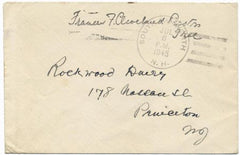 Frances F. Cleveland Preston
Free
JUL
6
P.M.
1945
N.H.
Rockwood Dairy
178 Nassau St
Princeton
NJ